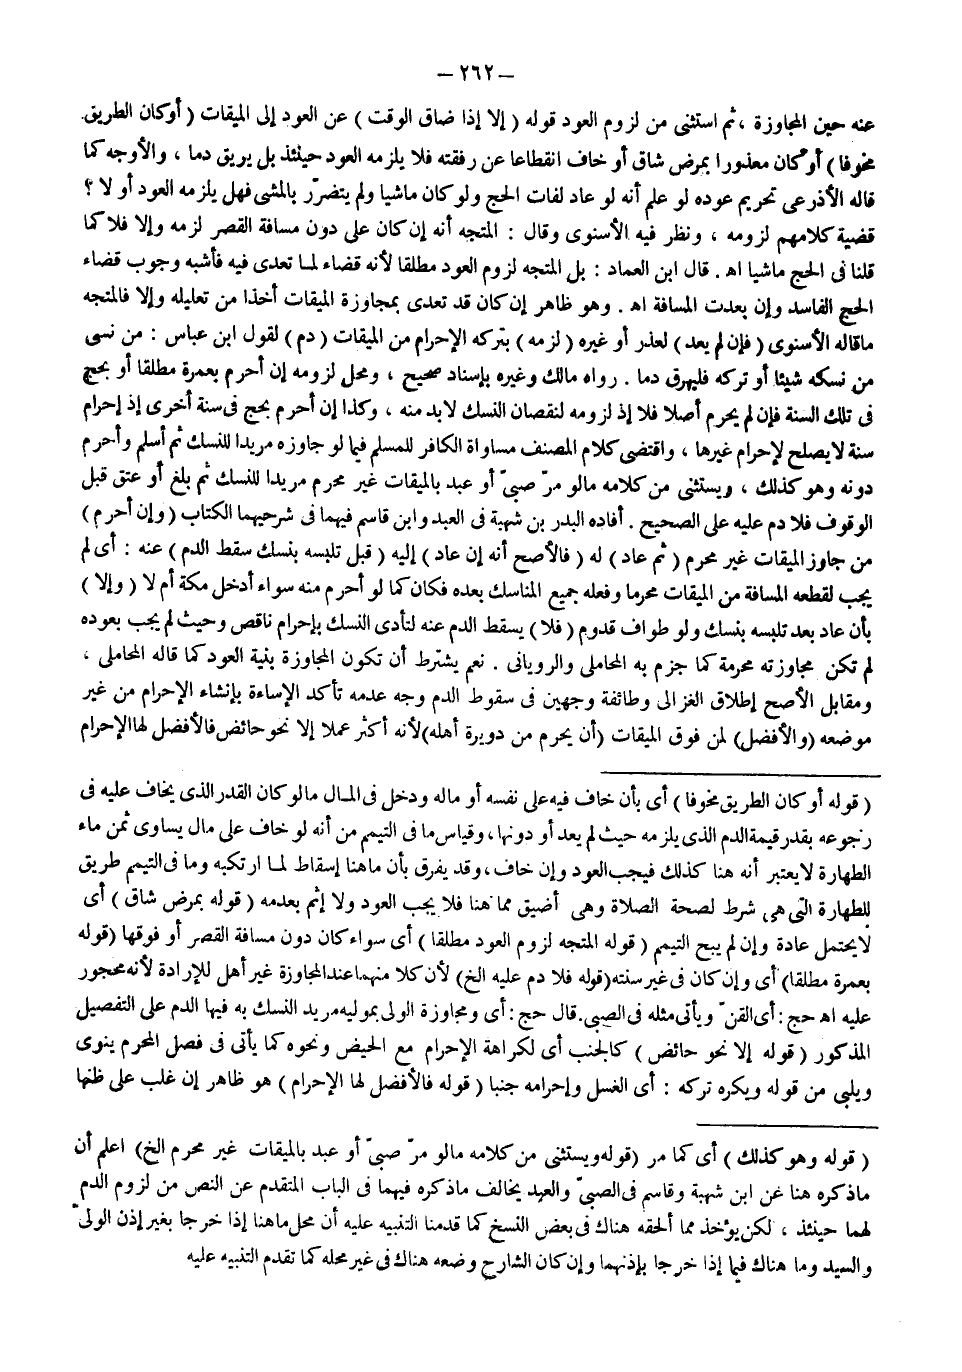 — ٢٦٢ —
عنه حين المجاوزة ، ثم استثنى من لزوم العود قوله ( إلا إذا ضاق الوقت ) عن العود إلى الميقات ( أو كان الطريق
مخوفا ) أو كان معذورا بمرض شاق أو خاف انقطاعا عن رفقته فلا يلزمه العود حينئذ بل يريق دما ، والأوجه كما
قاله الأذرعى تحريم عوده لو علم أنه لو عاد لفات الحج ولو كان ماشيا ولم يتضرّر بالمشى فهل يلزمه العود أو لا ؟
قضية كلامهم لزومه ، ونظر فيه الأسنوى وقال : المتجه أنه إن كان على دون مسافة القصر لزمه وإلا فلا كما
قلنا فى الحج ماشيا اه . قال ابن العماد : بل المتجه لزوم العود مطلقا لأنه قضاء لما تعدى فيه فأشبه وجوب قضاء
الحج الفاسد وإن بعدت المسافة اه . وهو ظاهر إن كان قد تعدى بمجاوزة الميقات أخذا من تعليله وإلا فالمتجه
ماقاله الأسنوى ( فإن لم يعد ) لعذر أو غيره ( لزمه ) بتركه الإحرام من الميقات ( دم ) لقول ابن عباس : من نسى
من نسكه شيئا أو تركه فليهرق دما . رواه مالك وغيره بإسناد صحيح ، ومحل لزومه إن أحرم بعمرة مطلقا أو بحج
فى تلك السنة فإن لم يحرم أصلا فلا إذ لزومه لنقصان النسك لا بد منه ، وكذا إن أحرم بحج فى سنة أخرى إذ إحرام
سنة لايصلح لإحرام غيرها ، واقتضى كلام المصنف مساواة الكافر للمسلم فيما لو جاوزه مريدا للنسك ثم أسلم وأحرم
دونه وهو كذلك ، ويستثنى من كلامه مالو مرّ صبىّ أو عبد بالميقات غير محرم مريدا للنسك ثم بلغ أو عتق قبل
الوقوف فلا دم عليه على الصحيح . أفاده البدر بن شهبة فى العبد وابن قاسم فيهما فى شرحيهما الكتاب ( وإن أحرم )
من جاوز الميقات غير محرم ( ثم عاد ) له ( فالأصح أنه إن عاد ) إليه ( قبل تلبسه بنسك سقط الدم ) عنه : أى لم
يجب لقطعه المسافة من الميقات محرما وفعله جميع المناسك بعده فكان كما لو أحرم منه سواء أدخل مكة أم لا ( وإلا )
بأن عاد بعد تلبسه بنسك ولو طواف قدوم ( فلا ) يسقط الدم عنه لتأدى النسك بإحرام ناقص وحيث لم يجب بعوده
لم تكن مجاوزته محرمة كما جزم به المحاملى والرويانى . نعم يشترط أن تكون المجاوزة بنية العود كما قاله المحاملى ،
ومقابل الأصح إطلاق الغزالى وطائفة وجهين فى سقوط الدم وجه عدمه تأكد الإساءة بإنشاء الإحرام من غير
موضعه (والأفضل) لمن فوق الميقات (أن يحرم من دويرة أهله) لأنه أكثر عملا إلا نحو حائض فالأفضل لها الإحرام
( قوله أو كان الطريق مخوفا ) أى بأن خاف فيه على نفسه أو ماله ودخل فى المال مالو كان القدر الذى يخاف عليه فى
رجوعه بقدر قيمة الدم الذى يلزمه حيث لم يعد أو دونها ، وقياس ما فى التيمم من أنه لو خاف على مال يساوى ثمن ماء
الطهارة لايعتبر أنه هنا كذلك فيجب العود وإن خاف ، وقد يفرق بأن ماهنا إسقاط لما ارتكبه وما فى التيمم طريق
للطهارة التى هى شرط لصحة الصلاة وهى أضيق مما هنا فلا يجب العود ولا إثم بعدمه ( قوله بمرض شاق ) أى
لايحتمل عادة وإن لم يبح التيمم ( قوله المتجه لزوم العود مطلقا ) أى سواء كان دون مسافة القصر أو فوقها (قوله
بعمرة مطلقا) أى وإن كان فى غير سنته (قوله فلا دم عليه الخ) لأن كلا منهما عند المجاوزة غير أهل للإرادة لأنه محجور
عليه اه حج : أى القن ّ ويأتى مثله فى الصبى. قال حج : أى ومجاوزة الولى بموليه مريد النسك به فيها الدم على التفصيل
المذكور ( قوله إلا نحو حائض ) كالجنب أى لكراهة الإحرام مع الحيض ونحوه كما يأتى فى فصل المحرم ينوى
ويلبى من قوله ويكره تركه : أى الغسل وإحرامه جنبا ( قوله فالأفضل لها الإحرام ) هو ظاهر إن غلب على ظنها
( قوله وهو كذلك ) أى كما مر (قوله ويستثنى من كلامه مالو مرّ صبىّ أو عبد بالميقات غير محرم الخ) اعلم أن
ماذكره هنا عن ابن شهبة وقاسم فى الصبىّ والعبد يخالف ماذكره فيهما فى الباب المتقدم عن النص من لزوم الدم
لهما حينئذ ، لكن يؤخذ مما ألحقه هناك فى بعض النسخ كما قدمنا التنبيه عليه أن محل ماهنا إذا خرجا بغير إذن الولىّ
والسيد وما هناك فيما إذا خرجا بإذنهما وإن كان الشارح وضعه هناك فى غير محله كما تقدم التنبيه عليه